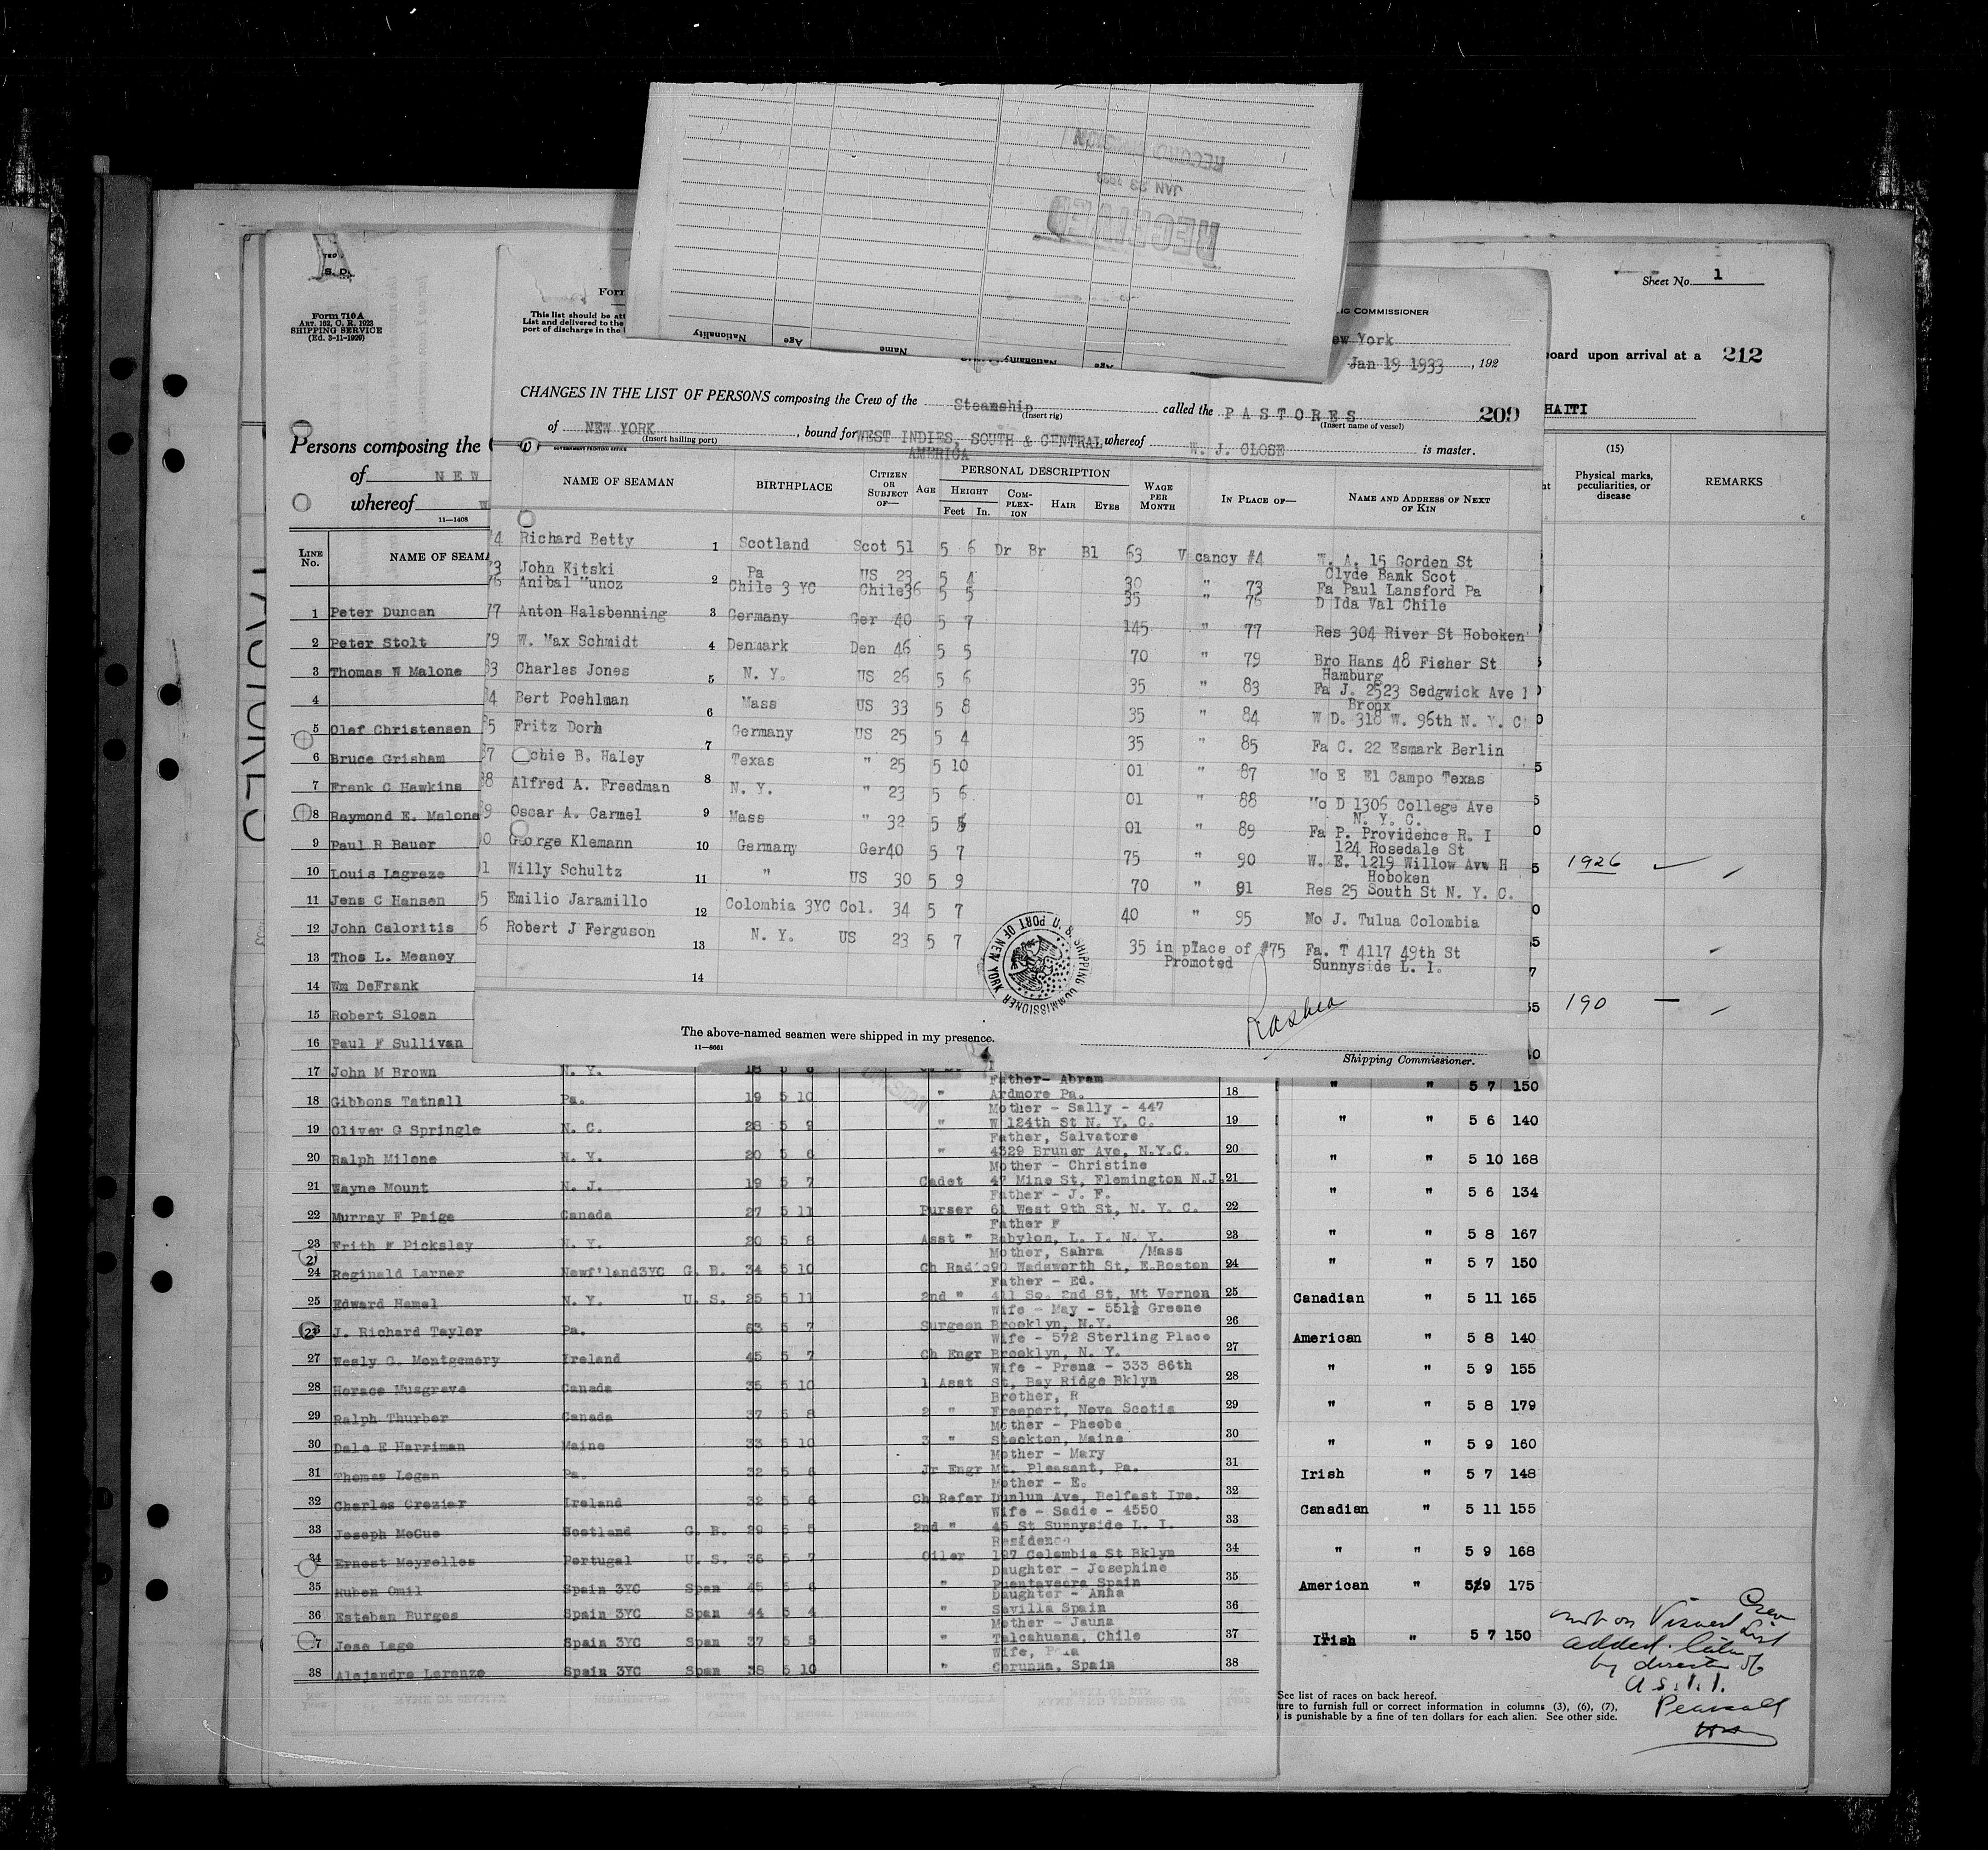 RECORD DIVISION
JAN 23 1933
RECEIVED
Nationality
Age
Name
S. D.
Form 710A
ART. 162, O. R. 1923
SHIPPING SERVICE
(Ed. 3-11-1929)
Persons composing the
of NEW
whereof
11—1408
LINE No.
Sheet No. 1
board upon arrival at a 212
HAITI
(15)
Physical marks, peculiarities, or disease
REMARKS
This list should be
List and delivered to the
port of discharge in the
COMMISSIONER
ew York
Jan 19 1933, 192
CHANGES IN THE LIST OF PERSONS composing the Crew of the Steamship called the PASTORES 209
(Insert rig) (Insert name of vessel)
of NEW YORK, bound for WEST INDIES, SOUTH & CENTRAL AMERICA whereof W. J. CLOSE is master.
(Insert hailing port)
GOVERNMENT PRINTING OFFICE
NAME OF SEAMAN BIRTHPLACE CITIZEN OR SUBJECT OF— AGE PERSONAL DESCRIPTION HEIGHT Feet In. COMPLEXION HAIR EYES WAGE PER MONTH IN PLACE OF— NAME AND ADDRESS OF NEXT OF KIN
4 Richard Betty 1 Scotland Scot 51 5 6 Dr Br Bl 63 Vacancy #4 W. A. 15 Gorden St
Clyde Bank Scot
3 John Kitski 2 Pa US 23 5 4 30 " 73 Fa Paul Lansford Pa
76 Anibal Munoz Chile 3 YC Chile 36 5 5 35 " 76 D Ida Val Chile
77 Anton Halsbenning 3 Germany Ger 40 5 7 145 " 77 Res 304 River St Hoboken
79 W. Max Schmidt 4 Denmark Den 46 5 5 70 " 79 Bro Hans 48 Fisher St
Hamburg
83 Charles Jones 5 N. Y. US 26 5 6 35 " 83 Fa J. 2523 Sedgwick Ave
Bronx
84 Bert Poehlman 6 Mass US 33 5 8 35 " 84 W D. 318 W. 96th N. Y. C
85 Fritz Dorn 7 Germany US 25 5 4 35 " 85 Fa C. 22 Esmark Berlin
87 chie B. Haley Texas " 25 5 10 01 " 87 Mo E El Campo Texas
88 Alfred A. Freedman 8 N. Y. " 23 5 6 01 " 88 Mo D 1306 College Ave
N. Y. C.
89 Oscar A. Carmel 9 Mass " 32 5 01 " 89 Fa P. Providence R. I
124 Rosedale St
George Klemann 10 Germany Ger 40 5 7 75 " 90 W. E. 1219 Willow Ave H
Hoboken
Willy Schultz 11 " US 30 5 9 70 " 91 Res 25 South St N. Y. C.
5 Emilio Jaramillo 12 Colombia 3YC Col. 34 5 7 40 " 95 Mo J. Tulua Colombia
6 Robert J Ferguson 13 N. Y. US 23 5 7 35 in place of #75 Fa. T 4117 49th St
Promoted Sunnyside L. I.
14
U. S. SHIPPING COMMISSIONER PORT OF NEW YORK
The above-named seamen were shipped in my presence.
11—8661
Shipping Commissioner.
NAME OF SEAMA
1 Peter Duncan
2 Peter Stolt
3 Thomas W Malone
4
5 Olaf Christensen
6 Bruce Grisham
7 Frank C Hawkins
8 Raymond E. Malone
9 Paul R Bauer
10 Louis Lagreze
11 Jens C Hansen
12 John Caloritis
13 Thos L. Meaney
14 Wm DeFrank
15 Robert Sloan
16 Paul F Sullivan
17 John M Brown N. Y. 18 5 8
Father- Abram
18 Gibbons Tatnall Pa. 19 5 10 " Ardmore Pa. 18
Mother - Sally - 447
19 Oliver G Springle N. C. 28 5 9 " W 124th St N. Y. C. 19
Father, Salvatore
20 Ralph Milone N. Y. 20 5 6 " 4329 Bruner Ave, N.Y.C. 20
Mother - Christine
21 Wayne Mount N. J. 19 5 7 Cadet 47 Mine St, Flemington N.J. 21
Father - J. F.
22 Murray F Paige Canada 27 5 11 Purser 61 West 9th St, N. Y. C. 22
Father F
23 Frith F Picksley N. Y. 20 5 8 Asst " Babylon, L. I. N. Y. 23
Mother, Sahra /Mass
24 Reginald Larner Newf'land3YC G. B. 34 5 10 Ch Radio 90 Wadsworth St, E.Boston 24
Father - Ed.
25 Edward Hamel N. Y. U. S. 25 5 11 2nd " 411 So. 2nd St, Mt Vernon 25
Wife - May - 551½ Greene
26 J. Richard Taylor Pa. 63 5 7 Surgeon Brooklyn, N.Y. 26
Wife - 572 Sterling Place
27 Wesly G. Montgomery Ireland 45 5 7 Ch Engr Brooklyn, N. Y. 27
Wife - Prena - 333 86th
28 Horace Musgrave Canada 35 5 10 1 Asst St, Bay Ridge Bklyn 28
Brother, R
29 Ralph Thurber Canada 37 5 8 2 " Freeport, Nova Scotia 29
Mother - Pheobe
30 Dale E Harriman Maine 33 5 10 3 " Stockton, Maine 30
Mother - Mary
31 Thomas Logan Pa. 32 5 6 Jr Engr Mt. Pleasant, Pa. 31
Mother - E.
32 Charles Crozier Ireland 32 5 6 Ch Refer Dunlun Ave, Belfast Ire. 32
Wife - Sadie - 4550
33 Joseph McCue Scotland G. B. 29 5 5 2nd " 45 St Sunnyside L. I. 33
Residence
34 Ernest Meyrelles Portugal U. S. 36 5 7 Oiler 197 Columbia St Bklyn 34
Daughter - Josephine
35 Ruben Omil Spain 3YC Span 45 5 6 " Puentaveara Spain 35
Daughter - Anna
36 Esteban Burges Spain 3YC Span 44 5 4 " Sevilla Spain 36
Mother - Jauna
37 Jose Lage Spain 3YC Span 37 5 5 " Talcahuana, Chile 37
Wife,
38 Alejandro Lorenzo Spain 3YC Span 38 5 10 " Corunna, Spain 38
1926
190 —
" " 5 7 150
" " 5 6 140
" " 5 10 168
" " 5 6 134
" " 5 8 167
" " 5 7 150
Canadian " 5 11 165
American " 5 8 140
" " 5 9 155
" " 5 8 179
" " 5 9 160
Irish " 5 7 148
Canadian " 5 11 155
" " 5 9 168
American " 5 9 175
Irish " 5 7 150
Crew
not on Visaed List
added. later
by direction of
a S. I. I.
Pearsall
See list of races on back hereof.
ure to furnish full or correct information in columns (3), (6), (7),
is punishable by a fine of ten dollars for each alien. See other side.